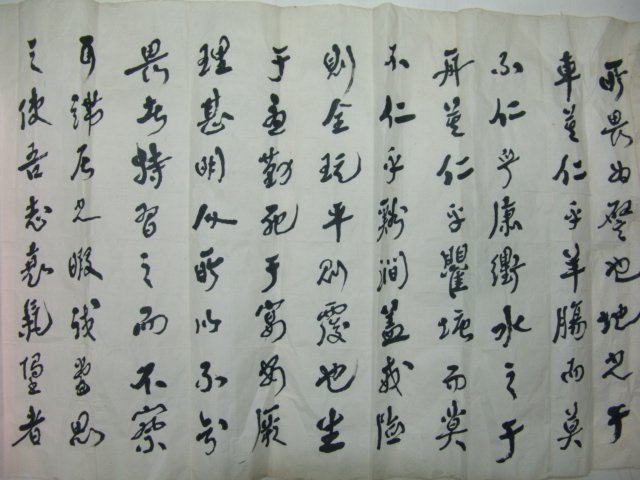 所畏如譬也地之于
車莫仁乎羊腸而莫
不仁乎康衢水之于
舟莫仁乎瞿塘而莫
不仁乎谿澗蓋戒險
則全玩平則覆也生
于憂勤死于宴安厥
理甚明人所以不知
畏者特習之而不察
耳之暇試嘗思
之使吾志衰氣墮者